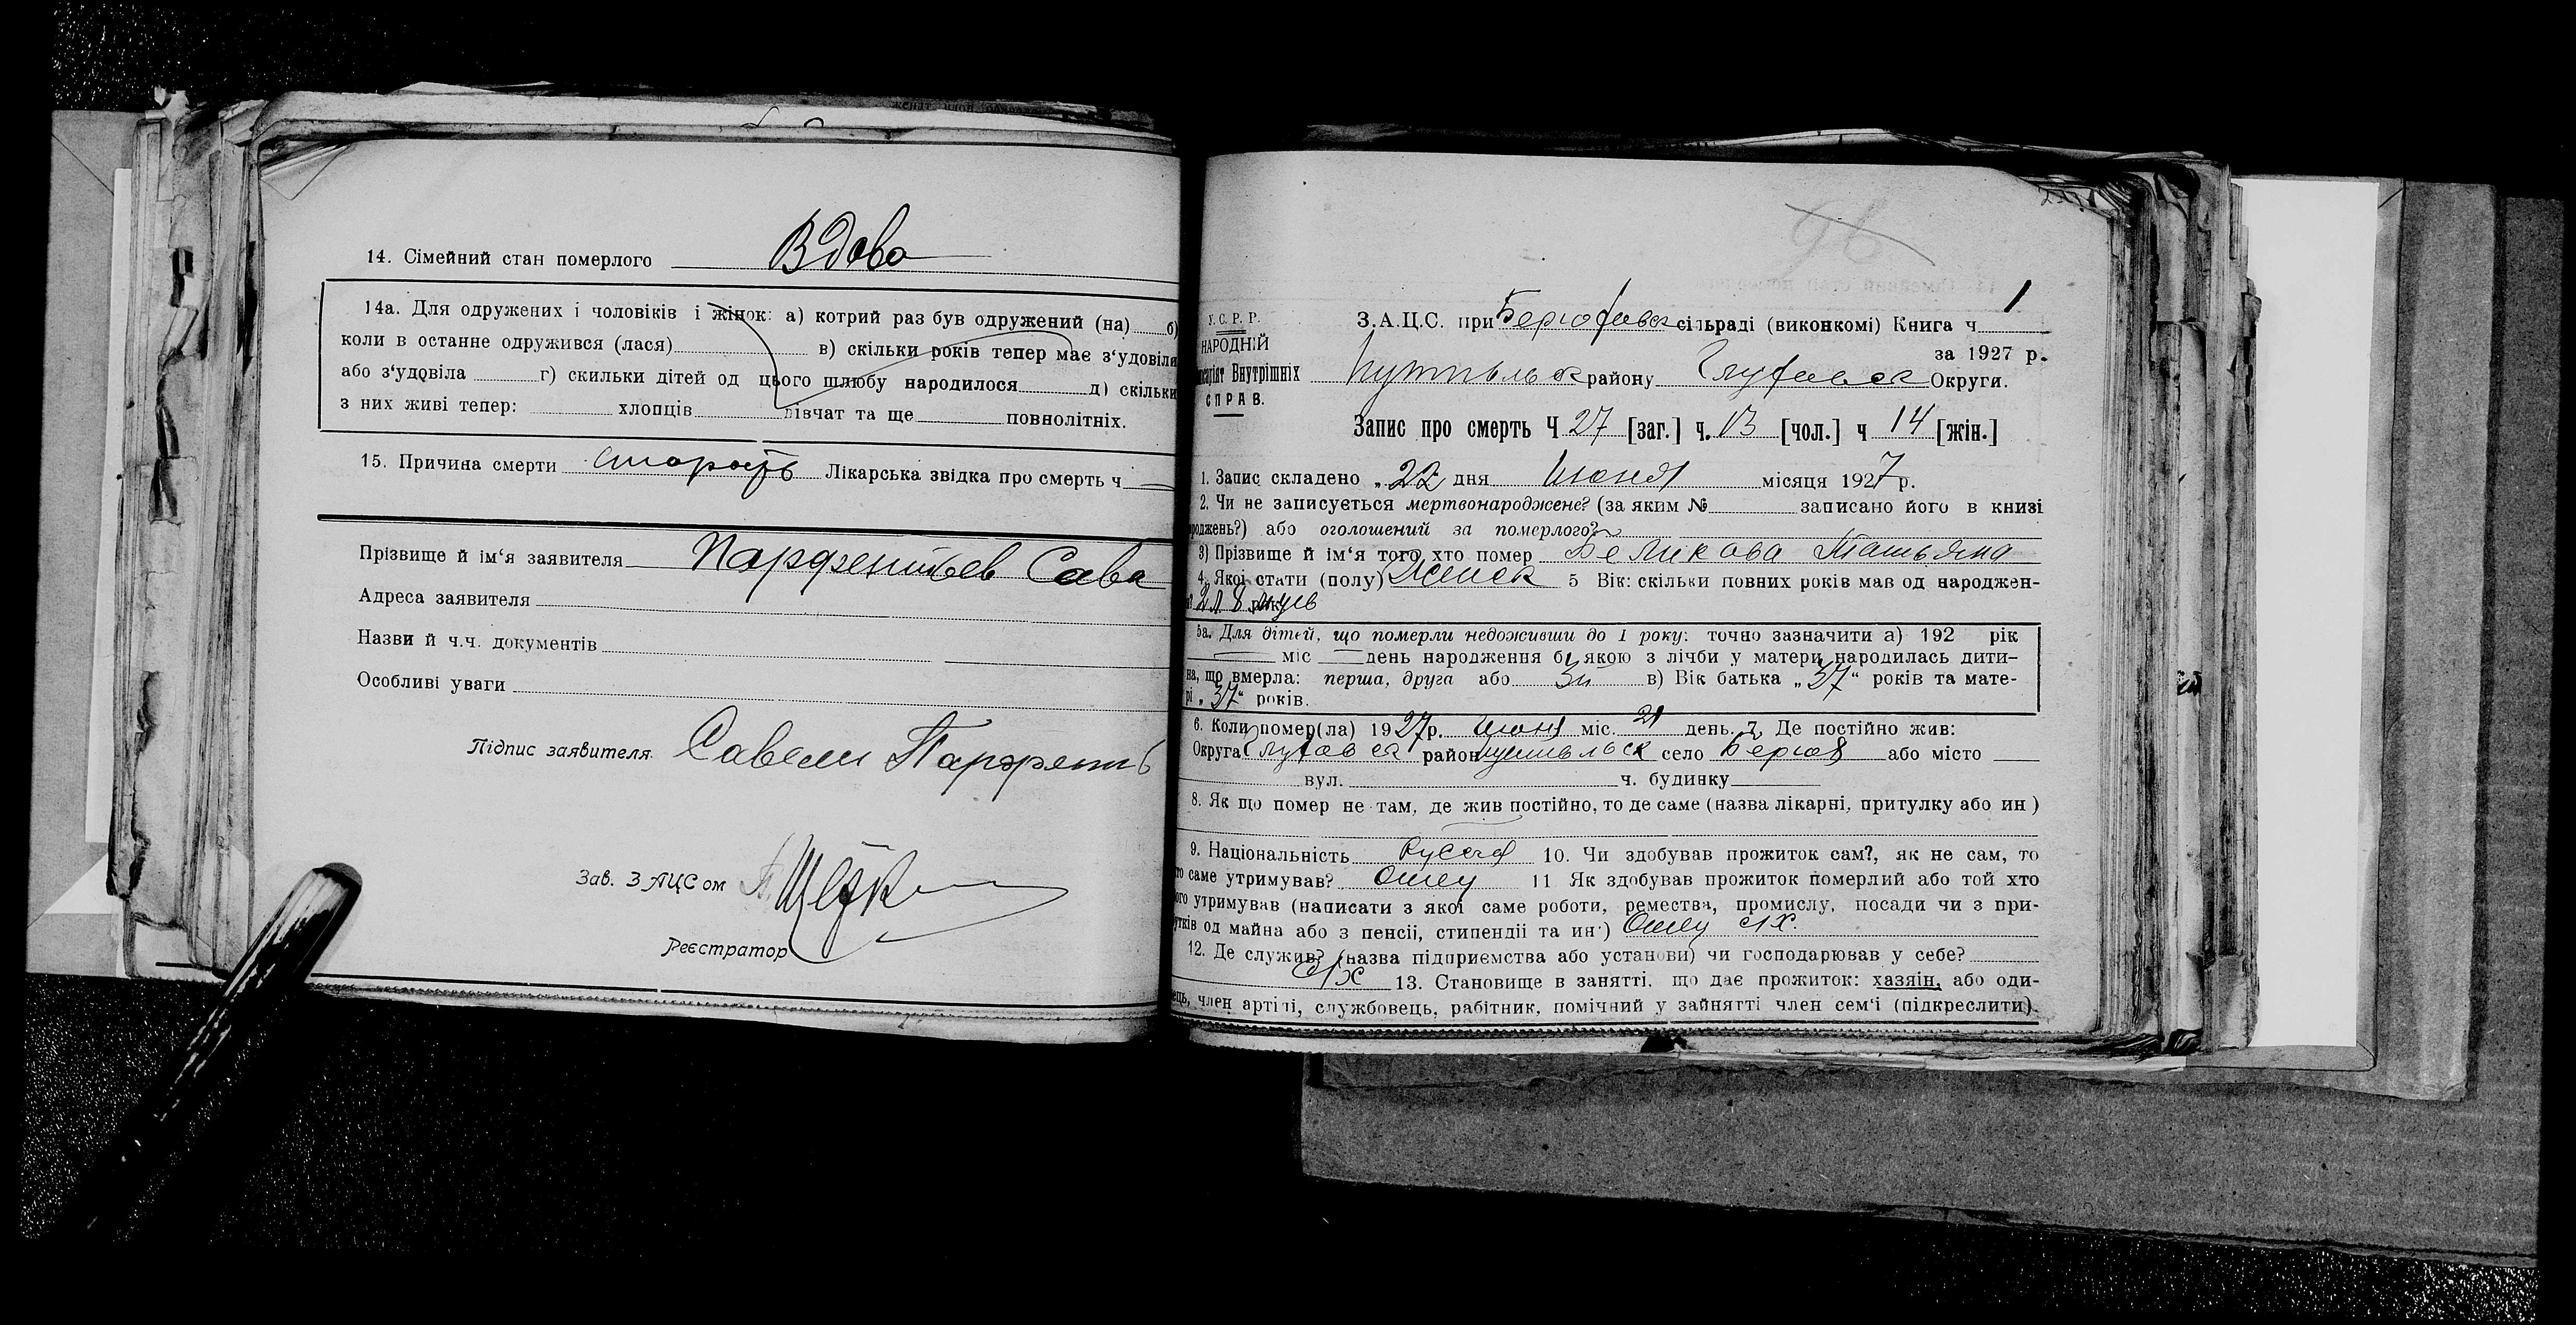 14. Сімейний стан померлого Вдова
14а. Для одружених і чоловіків і жінок: а) котрий раз був одружений (на) б)
коли в останне одружився (лася) в) скільки років тепер має з‘удовіли
або з‘удовіла г) скильки дітей од цього шлюбу народилося д) скільки
з них живі тепер: хлопців дівчат та ще повнолітніх.
15. Причина смерти старость Лікарська звідка про смерть ч
Прізвище й ім‘я заявителя Парфентьев Сава
Адреса заявителя
Назви й ч.ч. документів
Особливі уваги
Підпис заявителя Савели Парфенть
Зав. ЗАЦСом
Реєстратор
96
1
У.С.Р.Р.
НАРОДНІЙ
Внутрішніх
СПРАВ.
З.А.Ц.С. при сільраді (виконкомі) Книга ч
за 1927 р.
Путивльск району Глухавск Округи.
Запис про смерть Ч 27 [заг.] ч. 13 [чол.] ч 14 [жін.]
1. Запис складено „ 22 дня Июня місяця 1927 р.
2. Чи не записується мертвонароджене? (за яким № записано його в книзі
роджень?) або оголошений за померлого?
3) Прізвище й ім‘я того хто помер Беликова Татьяна
4. Якої стати (полу) Женск 5 Вік: скільки повних років мав од народжен-
2 л. 8 рік
5а. Для дітей, що померли недоживши до 1 року: точно зазначити а) 192 рік
міс день народження б) якою з лічби у матери народилась дити-
на, що вмерла: перша, друга або 3и в) Вік батька „ 37 “ років та мате-
рі „ 37 “ років.
6. Коли помер(ла) 1927р. июня міс. 21 день. 7. Де постійно жив:
Округа Глухавск район Путивльск село Берюх або місто
вул. ч. будинку
8. Як що помер не там, де жив постійно, то де саме (назва лікарні, притулку або ин)
9. Національність Русская 10. Чи здобував прожиток сам?, як не сам, то
то саме утримував? Отец 11 Як здобував прожиток померлий або той хто
ого утримував (написати з якої саме роботи, ремества, промислу, посади чи з при-
утків од майна або з пенсії, стипендії та ин·) Отец с/х.
12. Де служив? (назва підприємства або установи) чи господарював у себе?
с/х 13. Становище в занятті, що дає прожиток: хазяін, або оди-
ець, член артілі, службовець, рабітник, помічний у зайнятті член сем‘ї (підкреслити).